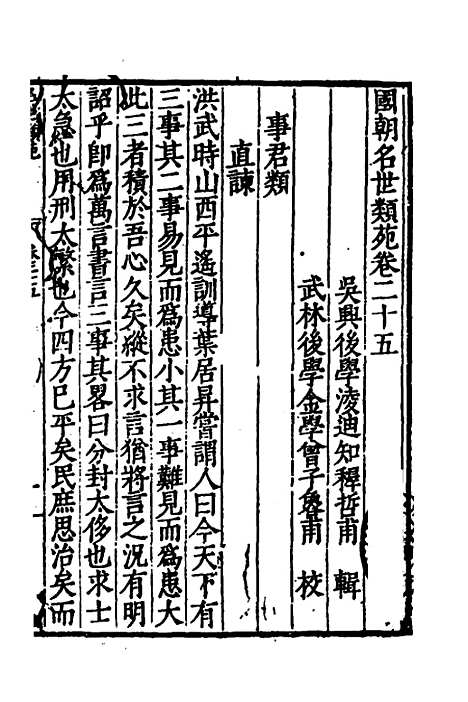 國朝名世類苑卷二十五
吳興後學凌迪知穉哲甫輯
武林後學金學曾子魯甫校
事君類
直諫
洪武時山西平遙訓導葉居昇嘗謂人曰今天下有
三事其二事易見而爲患小其一事難見而爲患大
此三者積於吾心久矣縱不求言猶將言之況有明
詔乎卽爲萬言書言三事其畧曰分封太侈也求士
太急也用刑太繁也今四方已平矣民庶思治矣而